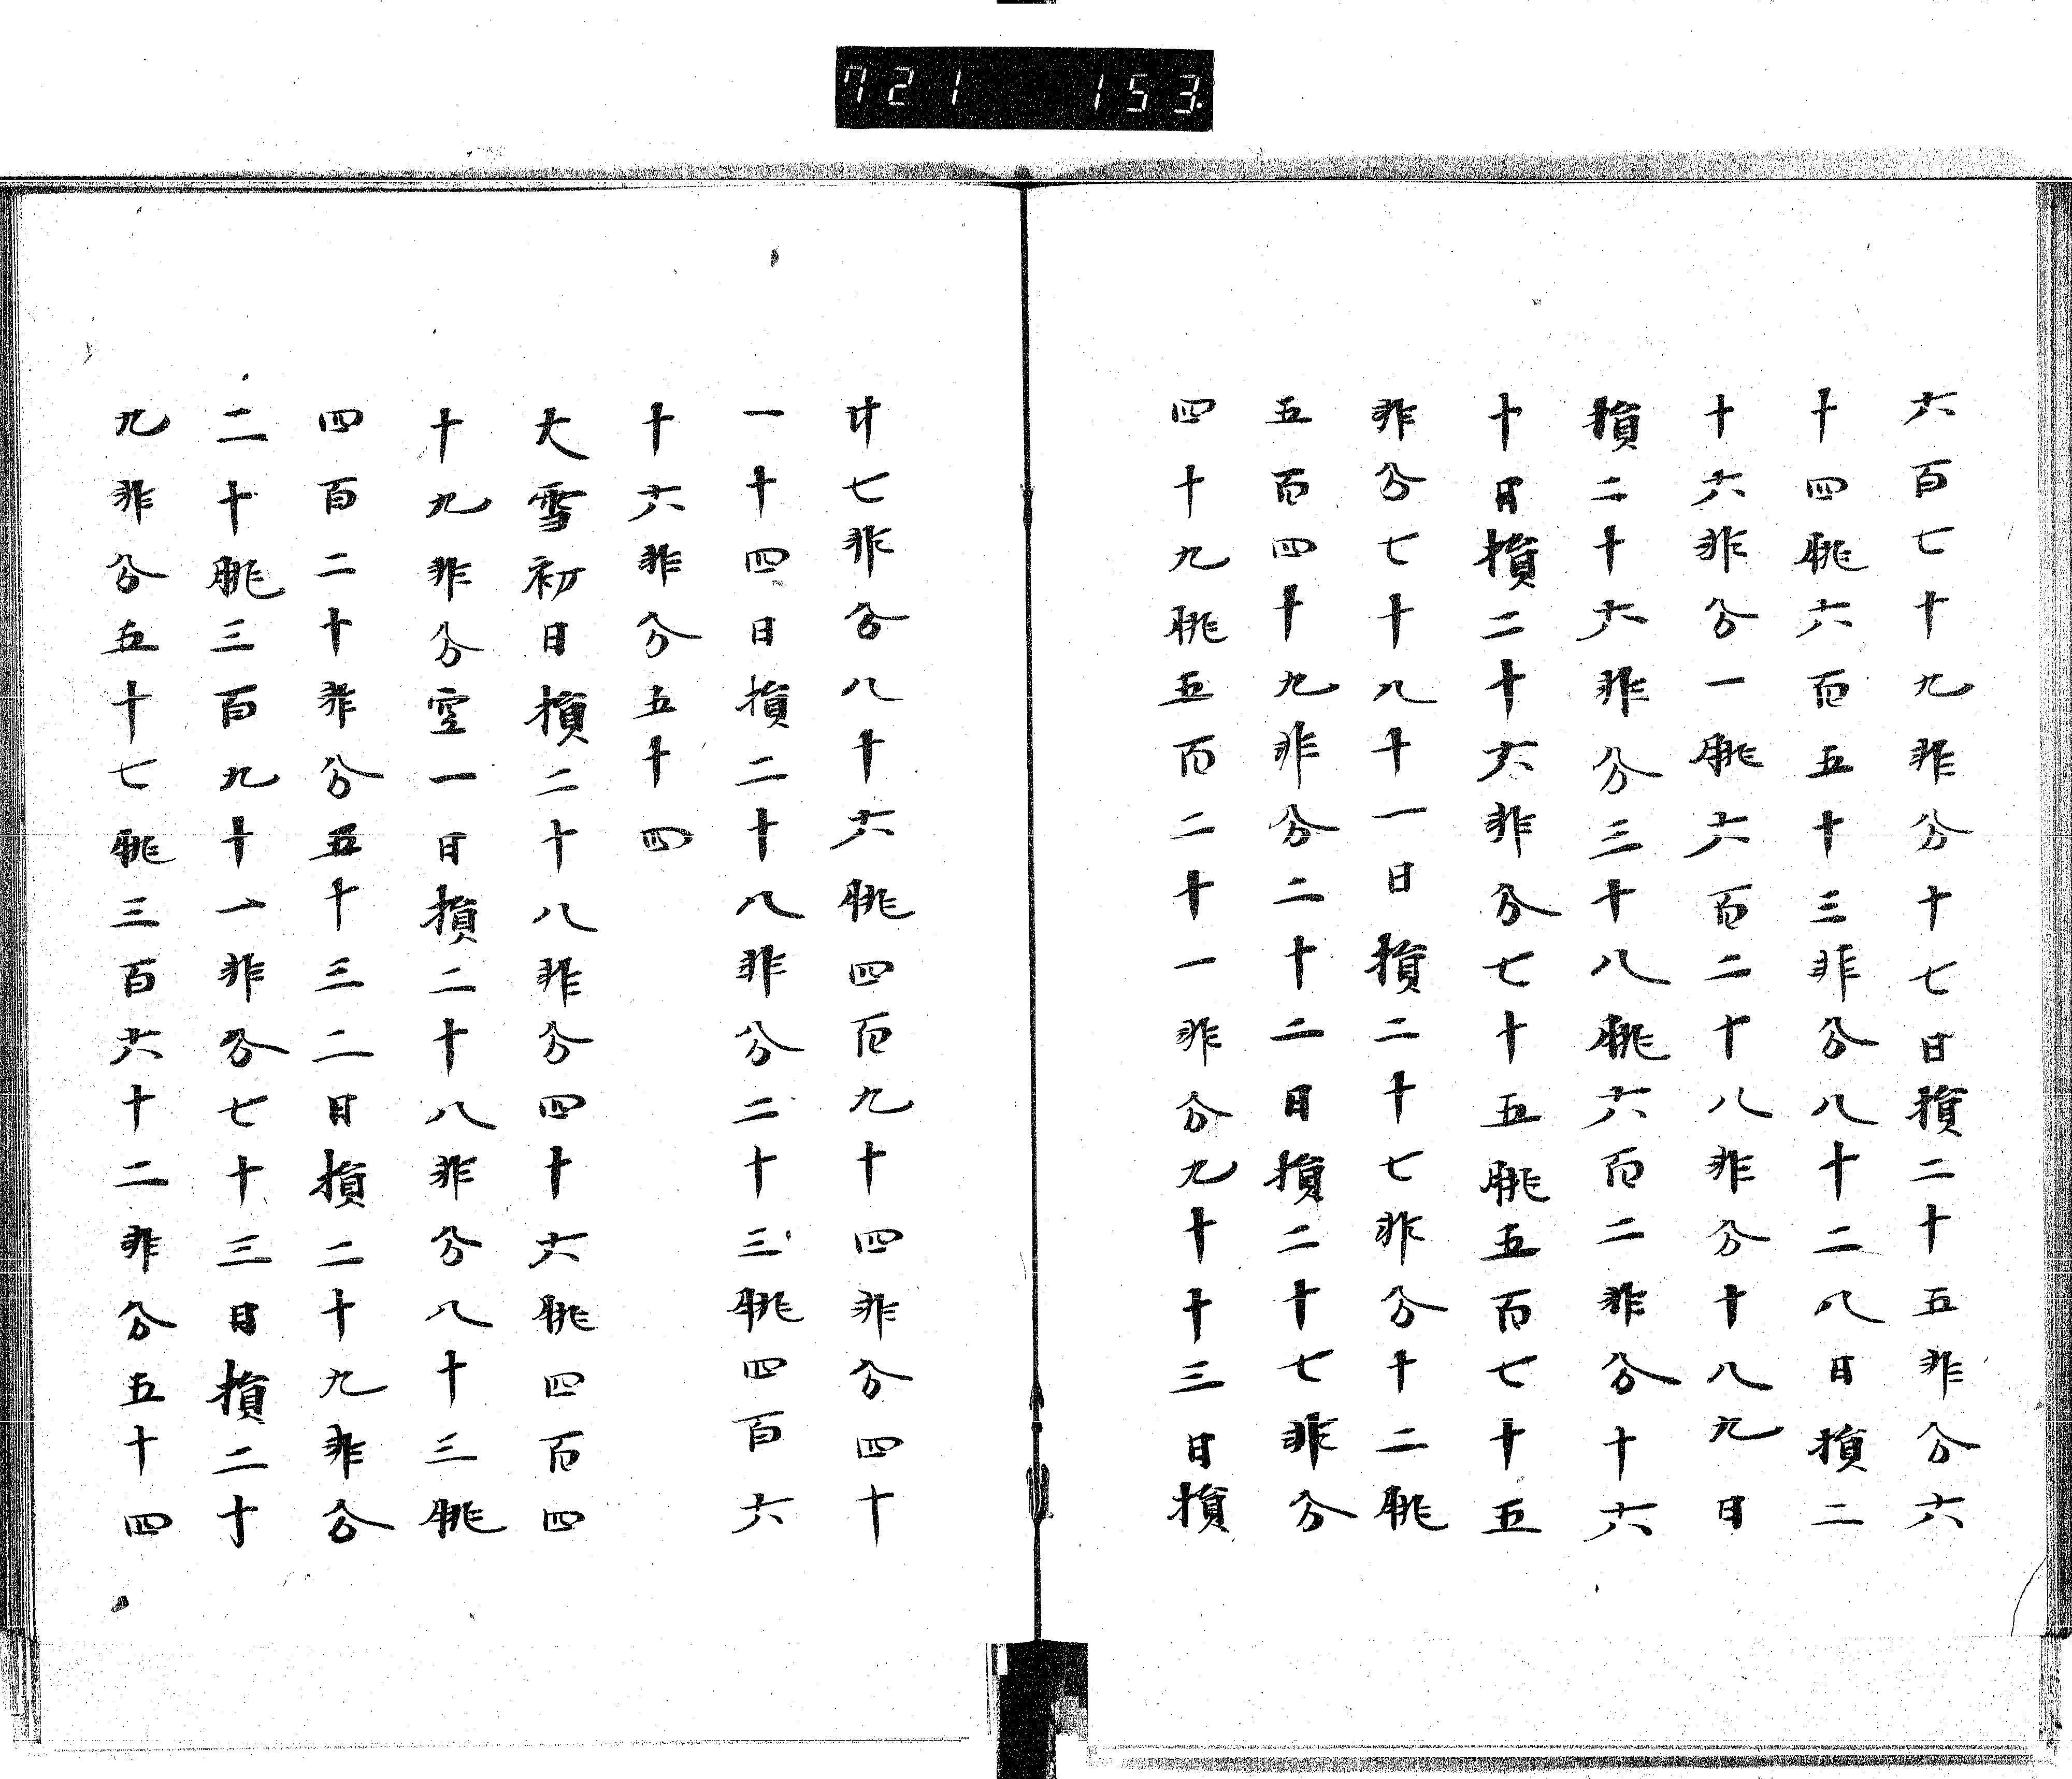 721 153
六百七十九非分十七日損二十五非分六
十四朓六百五十三非分八十二八日損二
十六非分一朓六百二十八非分十八九日
損二十六非分三十八朓六百二非分十六
十日損二十六非分七十五朓五百七十五
非分七十八十一日損二十七非分十二朓
五百四十九非分二十二日損二十七非分
四十九朓五百二十一非分九十十三日損
廿七非分八十六朓四百九十四非分四十
一十四日損二十八非分二十三朓四百六
十六非分五十四
大雪初日損二十八非分四十六朓四百四
十九非分空一日損二十八非分八十三朓
四百二十非分五十三二日損二十九非分
二十朓三百九十一非分七十三日損二十
九非分五十七朓三百六十二非分五十四